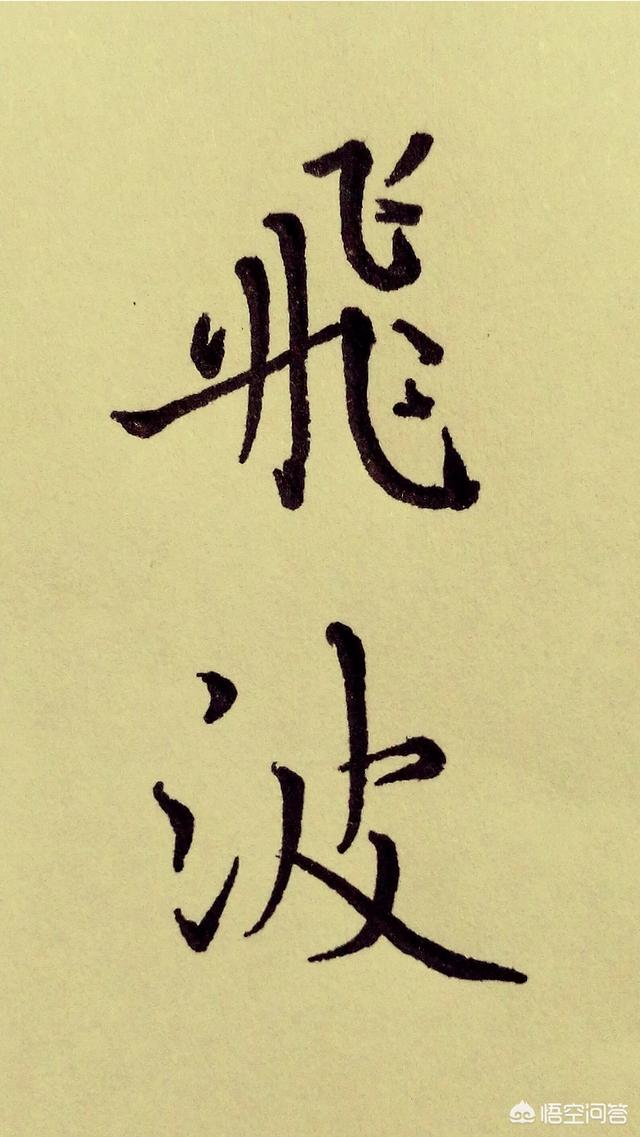 飛
波
悟空问答